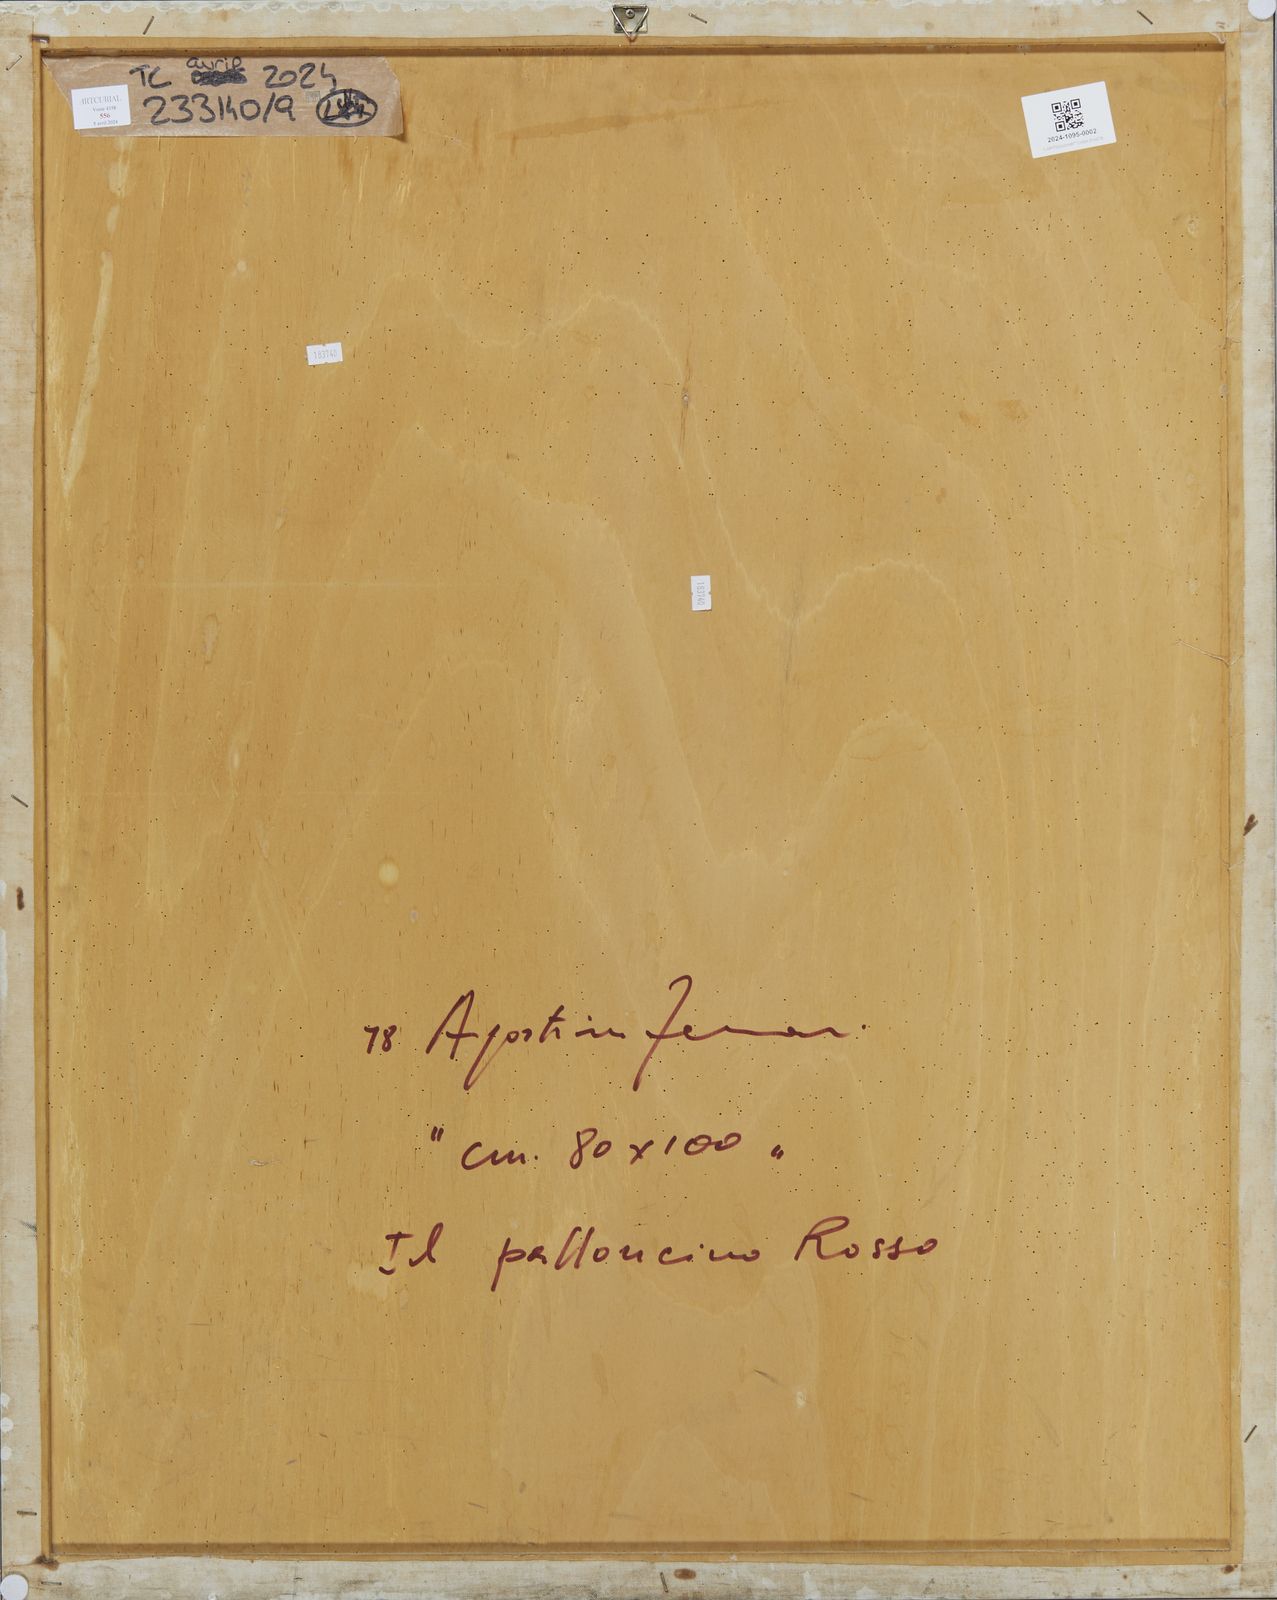 TC avril 2024
233140/9
ARTCURIAL
Vente 4198
556
8 avril 2024
2024-1095-0002
183740
183740
78 Agostino Ferrari
" cm. 80 x 100 "
Il palloncino Rosso